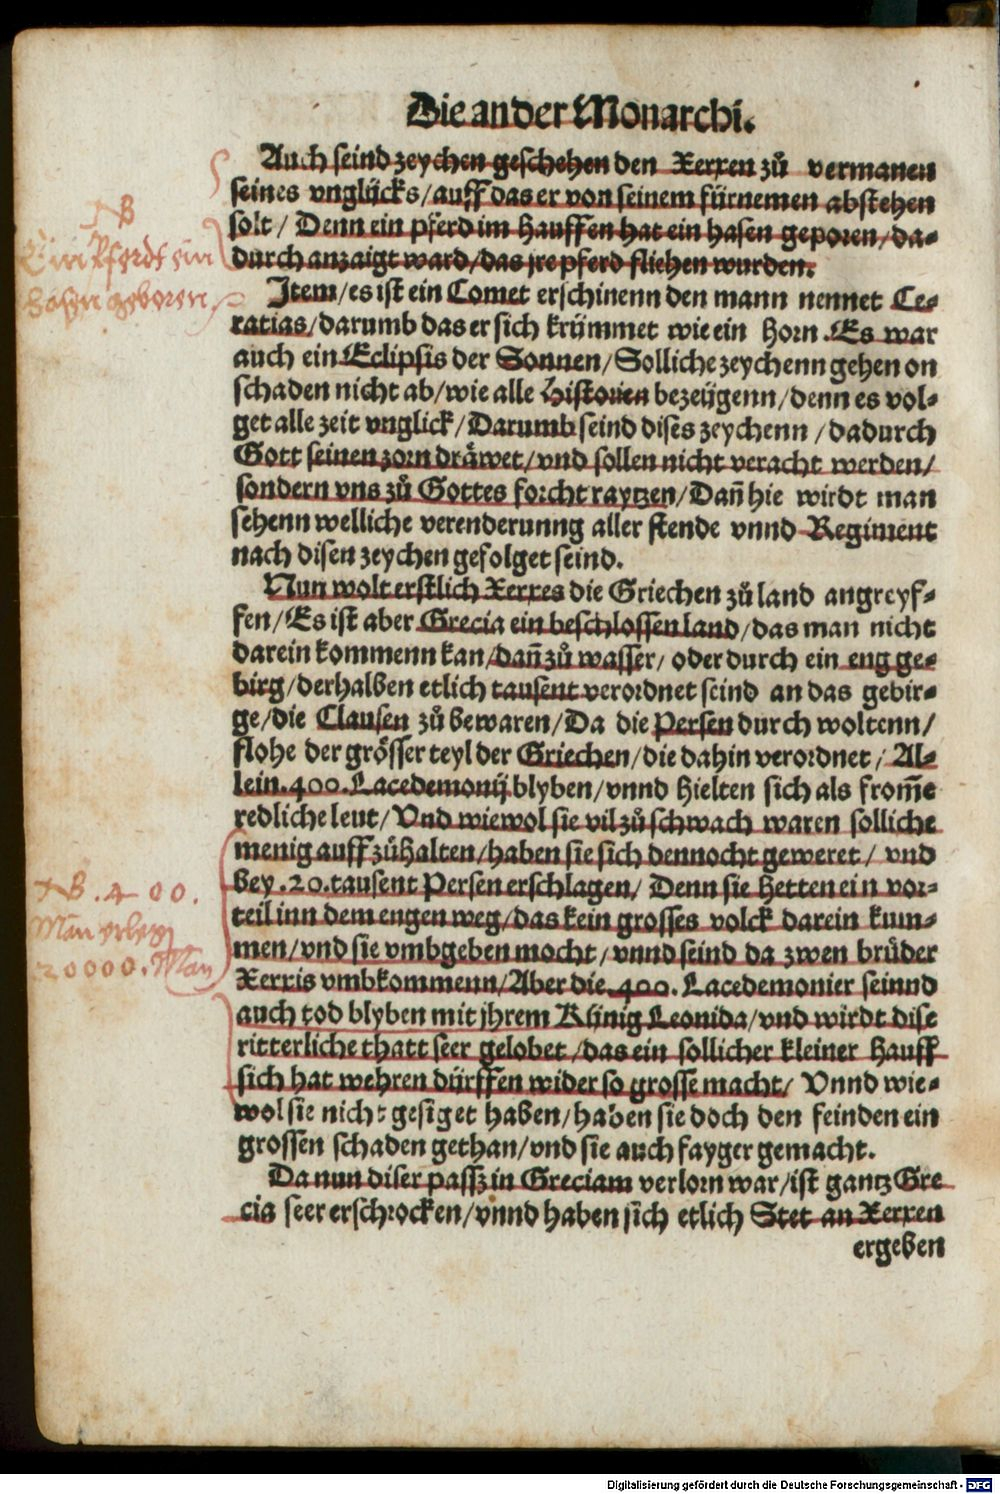 Die ander Monarchi.
Auch seind zeychen geschehen den Xerxen zů vermanen
seines vnglücks/auff das er von seinem fürnemen abstehen
solt/ Denn ein pferd im Hauffen hat ein hasen geporen/da-
durch anzaigt ward/das jre pferd fliehen wurden.
NB
Ein Pferdt ein
hasen geboren
Item/es ist ein Comet erschinenn den mann nennet Ce-
ratias/darumb das er sich krümmet wie ein Horn. Es war
auch ein Eclipsis der Sonnen/Solliche zeychenn gehen on
schaden nicht ab/wie alle Historien bezeügenn/denn es vol-
get alle zeit vnglick/Darumb seind dises zeychenn/dadurch
Gott seinen zorn dräwet/vnd sollen nicht veracht werden/
sondern vns zů Gottes forcht raytzen/Dañ hie wirdt man
sehenn welliche verenderunng aller stende vnnd Regiment
nach disen zeychen gefolget seind.
Nun wolt erstlich Xerxes die Griechen zů land angreyf-
fen/Es ist aber Grecia ein beschlossen land/das man nicht
darein kommenn kan/dañ zů wasser/ oder durch ein eng ge-
birg/derhalben etlich tausent verordnet seind an das gebir-
ge/die Clausen zů bewaren/Da die Persen durch woltenn/
flohe der grösser teyl der Griechen/die dahin verordnet/Al-
lein.400.Lacedemonij blyben/vnnd hielten sich als from̃e
redliche leut/Vnd wiewol sie vil zů schwach waren solliche
menig auff zůhalten/haben sie sich dennocht geweret/ vnd
bey.20.tausent Persen erschlagen/ Denn sie hetten ein vor-
teil inn dem engen weg/das kein grosses volck darein kum-
men/vnd sie vmbgeben mocht/vnnd seind da zwen brüder
Xerxis vmbkommenn/Aber die.400.Lacedemonier seinnd
NB. 400.
Man erlegen
20000. Man
auch tod blyben mit jhrem Künig Leonida/vnd wirdt dise
ritterliche thatt seer gelobet/das ein sollicher kleiner Hauff
sich hat wehren dürffen wider so grosse macht/ Vnnd wie-
wol sie nicht gesiget haben/haben sie doch den feinden ein
grossen schaden gethan/vnd sie auch fayger gemacht.
Da nun diser passz in Greciam verlorn war/ist gantz Gre
cia seer erschrocken/vnnd haben sich etlich Stet an Xerxen
ergeben
Digitalisierung gefördert durch die Deutsche Forschungsgemeinschaft - DFG